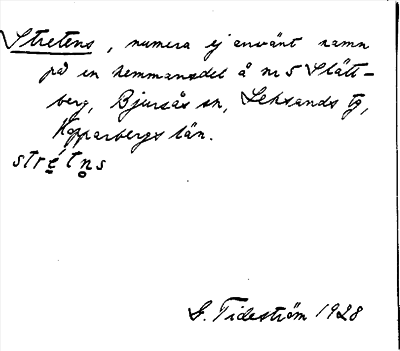 Stretens, numera ej använt namn
på en hemmansdel å nr 5 Slätt-
berg, Bjursås sn, Leksands tg,
Kopparbergs län.
strét̥n̥s
G. Tideström 1928